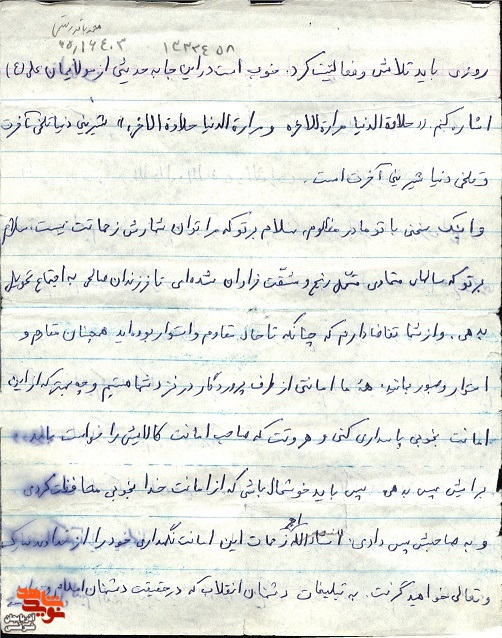 ۱۳۲۴۵۸
روزی باید تلاش و فعالیت کرد، خوب است در این جا به حدیثی از مولایمان علی (ع)
اشاره کنم. «حلاوة الدنیا مرارة الاخره و مرارة الدنیا حلاوة الاخره» شیرینی دنیا تلخی آخرت
و تلخی دنیا شیرینی آخرت است.
و اینک سخنی با تو مادر مظلوم، سلام بر تو که مرا توان شمارش زحماتت نیست، سلام
بر تو که سالیان متمادی متحمل رنج و مشقت فراوان شده‌ای تا فرزندان صالحی به اجتماع تحویل
بدهی. و از شما تقاضا دارم که چنانکه تا حال مقاوم و استوار بوده‌اید همچنان مقاوم و
استوار و صبور بمانید، همه ما امانتی از طرف پروردگار در نزد شما هستیم و چه بهتر که از این
امانت بخوبی پاسداری کنی و هر وقت که صاحب امانت کالایش را خواست باید
برایش پس بدهی پس باید خوشحال باشی که از امانت خدا بخوبی محافظت کردی
و به صاحبش پس دادی، انشاءالله اجر زحمات این امانت نگهداری خود را از خداوند
وتعالی خواهید گرفت. به تبلیغات دشمنان انقلاب که در حقیقت دشمنان اسلام
نوید شاهد
آذربایجان شرقی